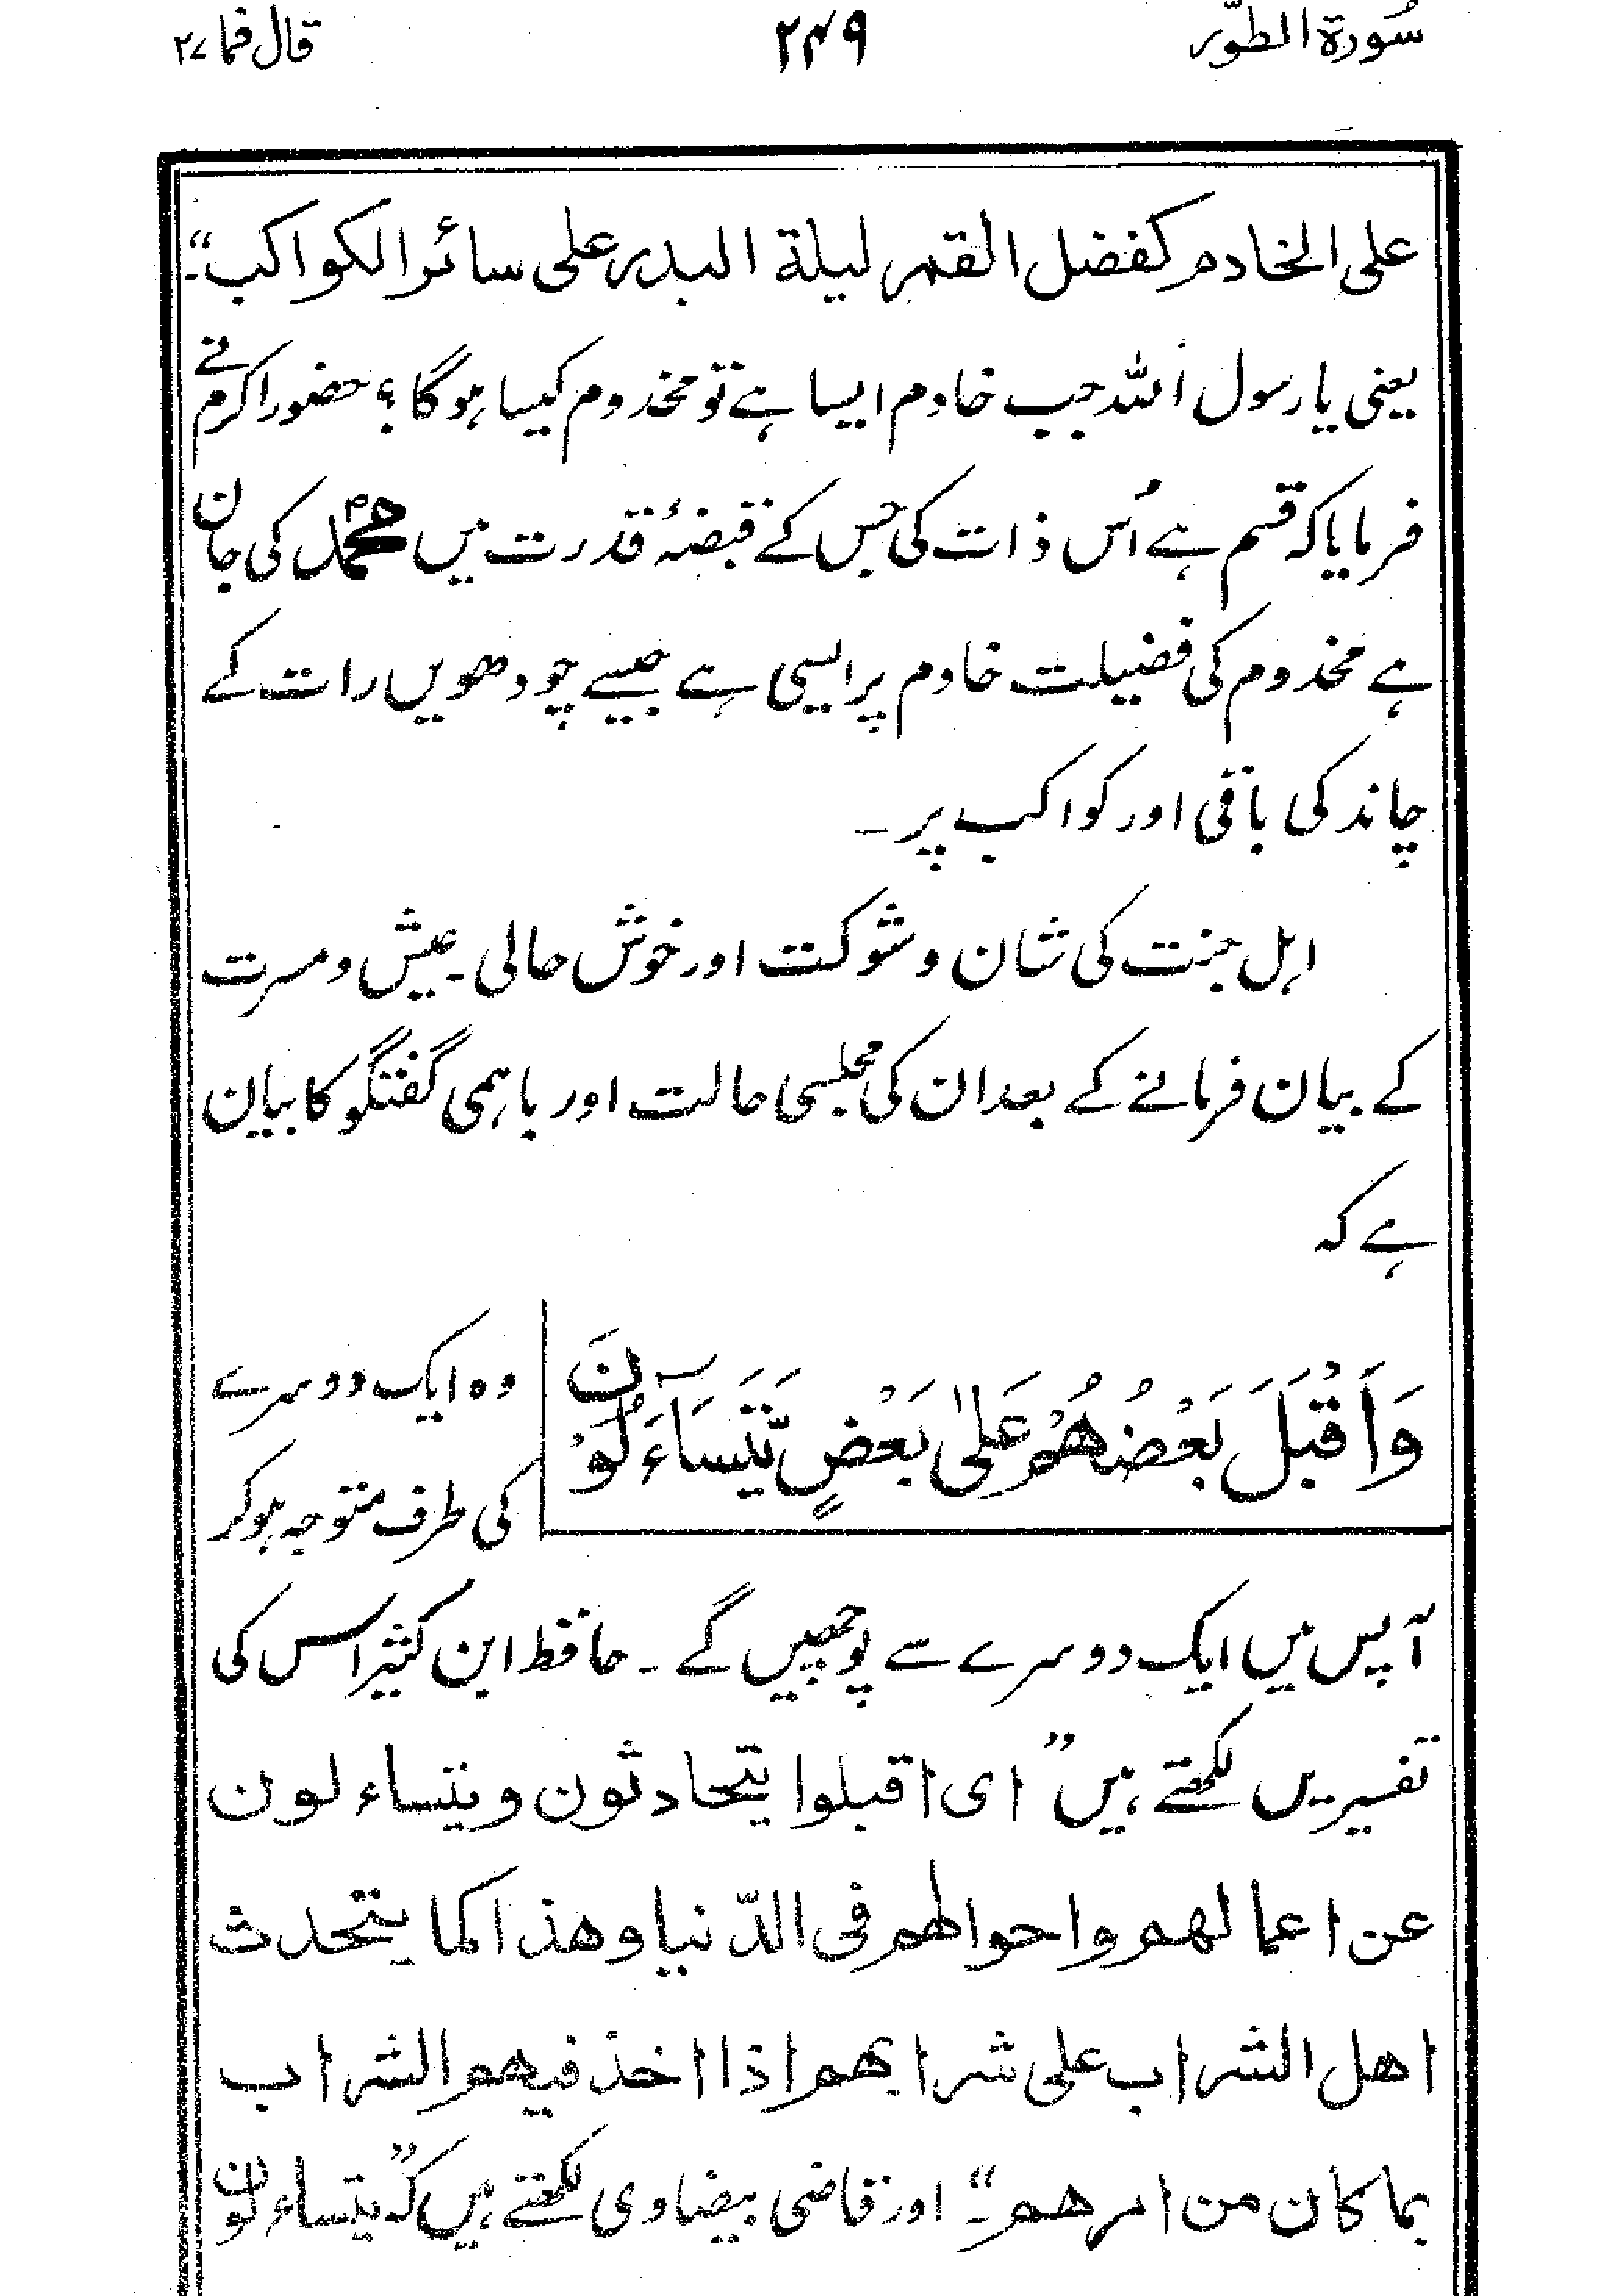 سُورۃ الطّور ۲۴۹ قال فما ۲۷
علی الخادم کفضل القمر لیلة البدر علی سائر الکواکب“۔
یعنی یا رسول اللہ جب خادم ایسا ہے تو مخدوم کیسا ہوگا؟ حضور اکرم نے
فرمایا کہ قسم ہے اُس ذات کی جس کے قبضۂ قدرت میں محمدؐ کی جان
ہے مخدوم کی فضیلت خادم پر ایسی ہے جیسے چودھویں رات کے
چاند کی باقی اور کواکب پر۔
اہل جنت کی شان و شوکت اور خوش حالی۔ عیش و مسرت
کے بیان فرمانے کے بعد ان کی مجلسی حالت اور باہمی گفتگو کا بیان
ہے کہ
وَاَقْبَلَ بَعْضُهُمْ عَلٰى بَعْضٍ يَّتَسَآءَلُوْنَ
وہ ایک دوسرے
کی طرف متوجہ ہوکر
آپس میں ایک دوسرے سے پوچھیں گے۔ حافظ ابن کثیر اس کی
تفسیر میں لکھتے ہیں ”ای اقبلوا یتحادثون ویتساءلون
عن اعمالهم واحوالهم فی الدّنیا وهذا کما یتحدث
اهل الشراب علی شرابهم اذا اخذ فیهم الشراب
بما کان من امرهم“۔ اور قاضی بیضاوی لکھتے ہیں کہ ”یتساءلون